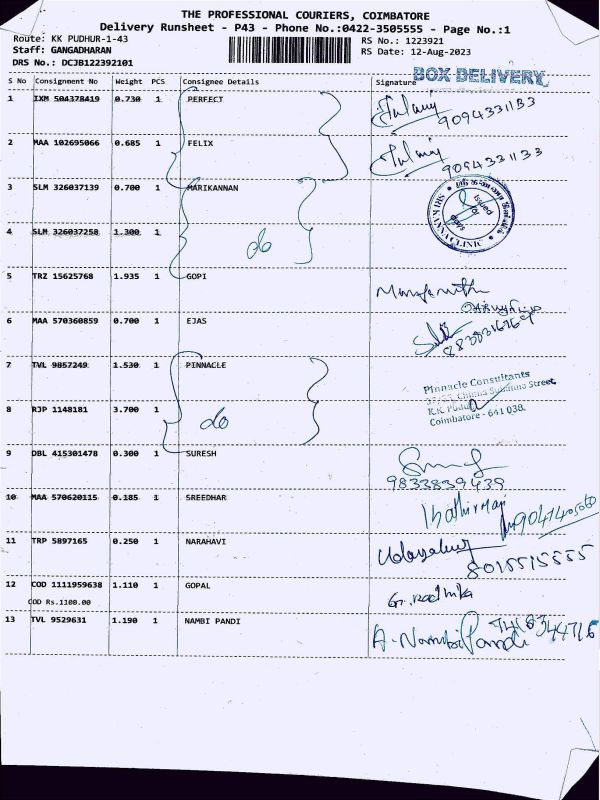 THE PROFESSIONAL COURIERS, COIMBATORE
Delivery Runsheet - P43 - Phone No.:0422-3505555 - Page No.:1
Route: KK PUDHUR-1-43 RS No.: 1223921
Staff: GANGADHARAN RS Date: 12-Aug-2023
DRS No.: DCJB122392101
BOX DELIVERY
S No Consignment No Weight PCS Consignee Details Signature
1 IXM 504378419 0.730 1 PERFECT
9094331133
2 MAA 102695066 0.685 1 FELIX
9094331133
3 SLM 326037139 0.700 1 MARIKANNAN
SRI KANNA CLINIC
Issued
for
4 SLM 326037258 1.300 1 do
5 TRZ 15625768 1.935 1 GOPI
Manjunath
6 MAA 570360859 0.700 1 EJAS
7 TVL 9857249 1.530 1 PINNACLE
Pinnacle Consultants
Street,
K.K Pudur
Coimbatore - 641 038.
8 RJP 1148181 3.700 1 do
9 DBL 415301478 0.300 1 SURESH
9833839439
10 MAA 570620115 0.185 1 SREEDHAR
11 TRP 5897165 0.250 1 NARAHAVI
Udayakumar
8015515555
12 COD 1111959638 1.110 1 GOPAL
G. Radhika
COD Rs.1100.00
13 TVL 9529631 1.190 1 NAMBI PANDI
A. Nambi Pandi